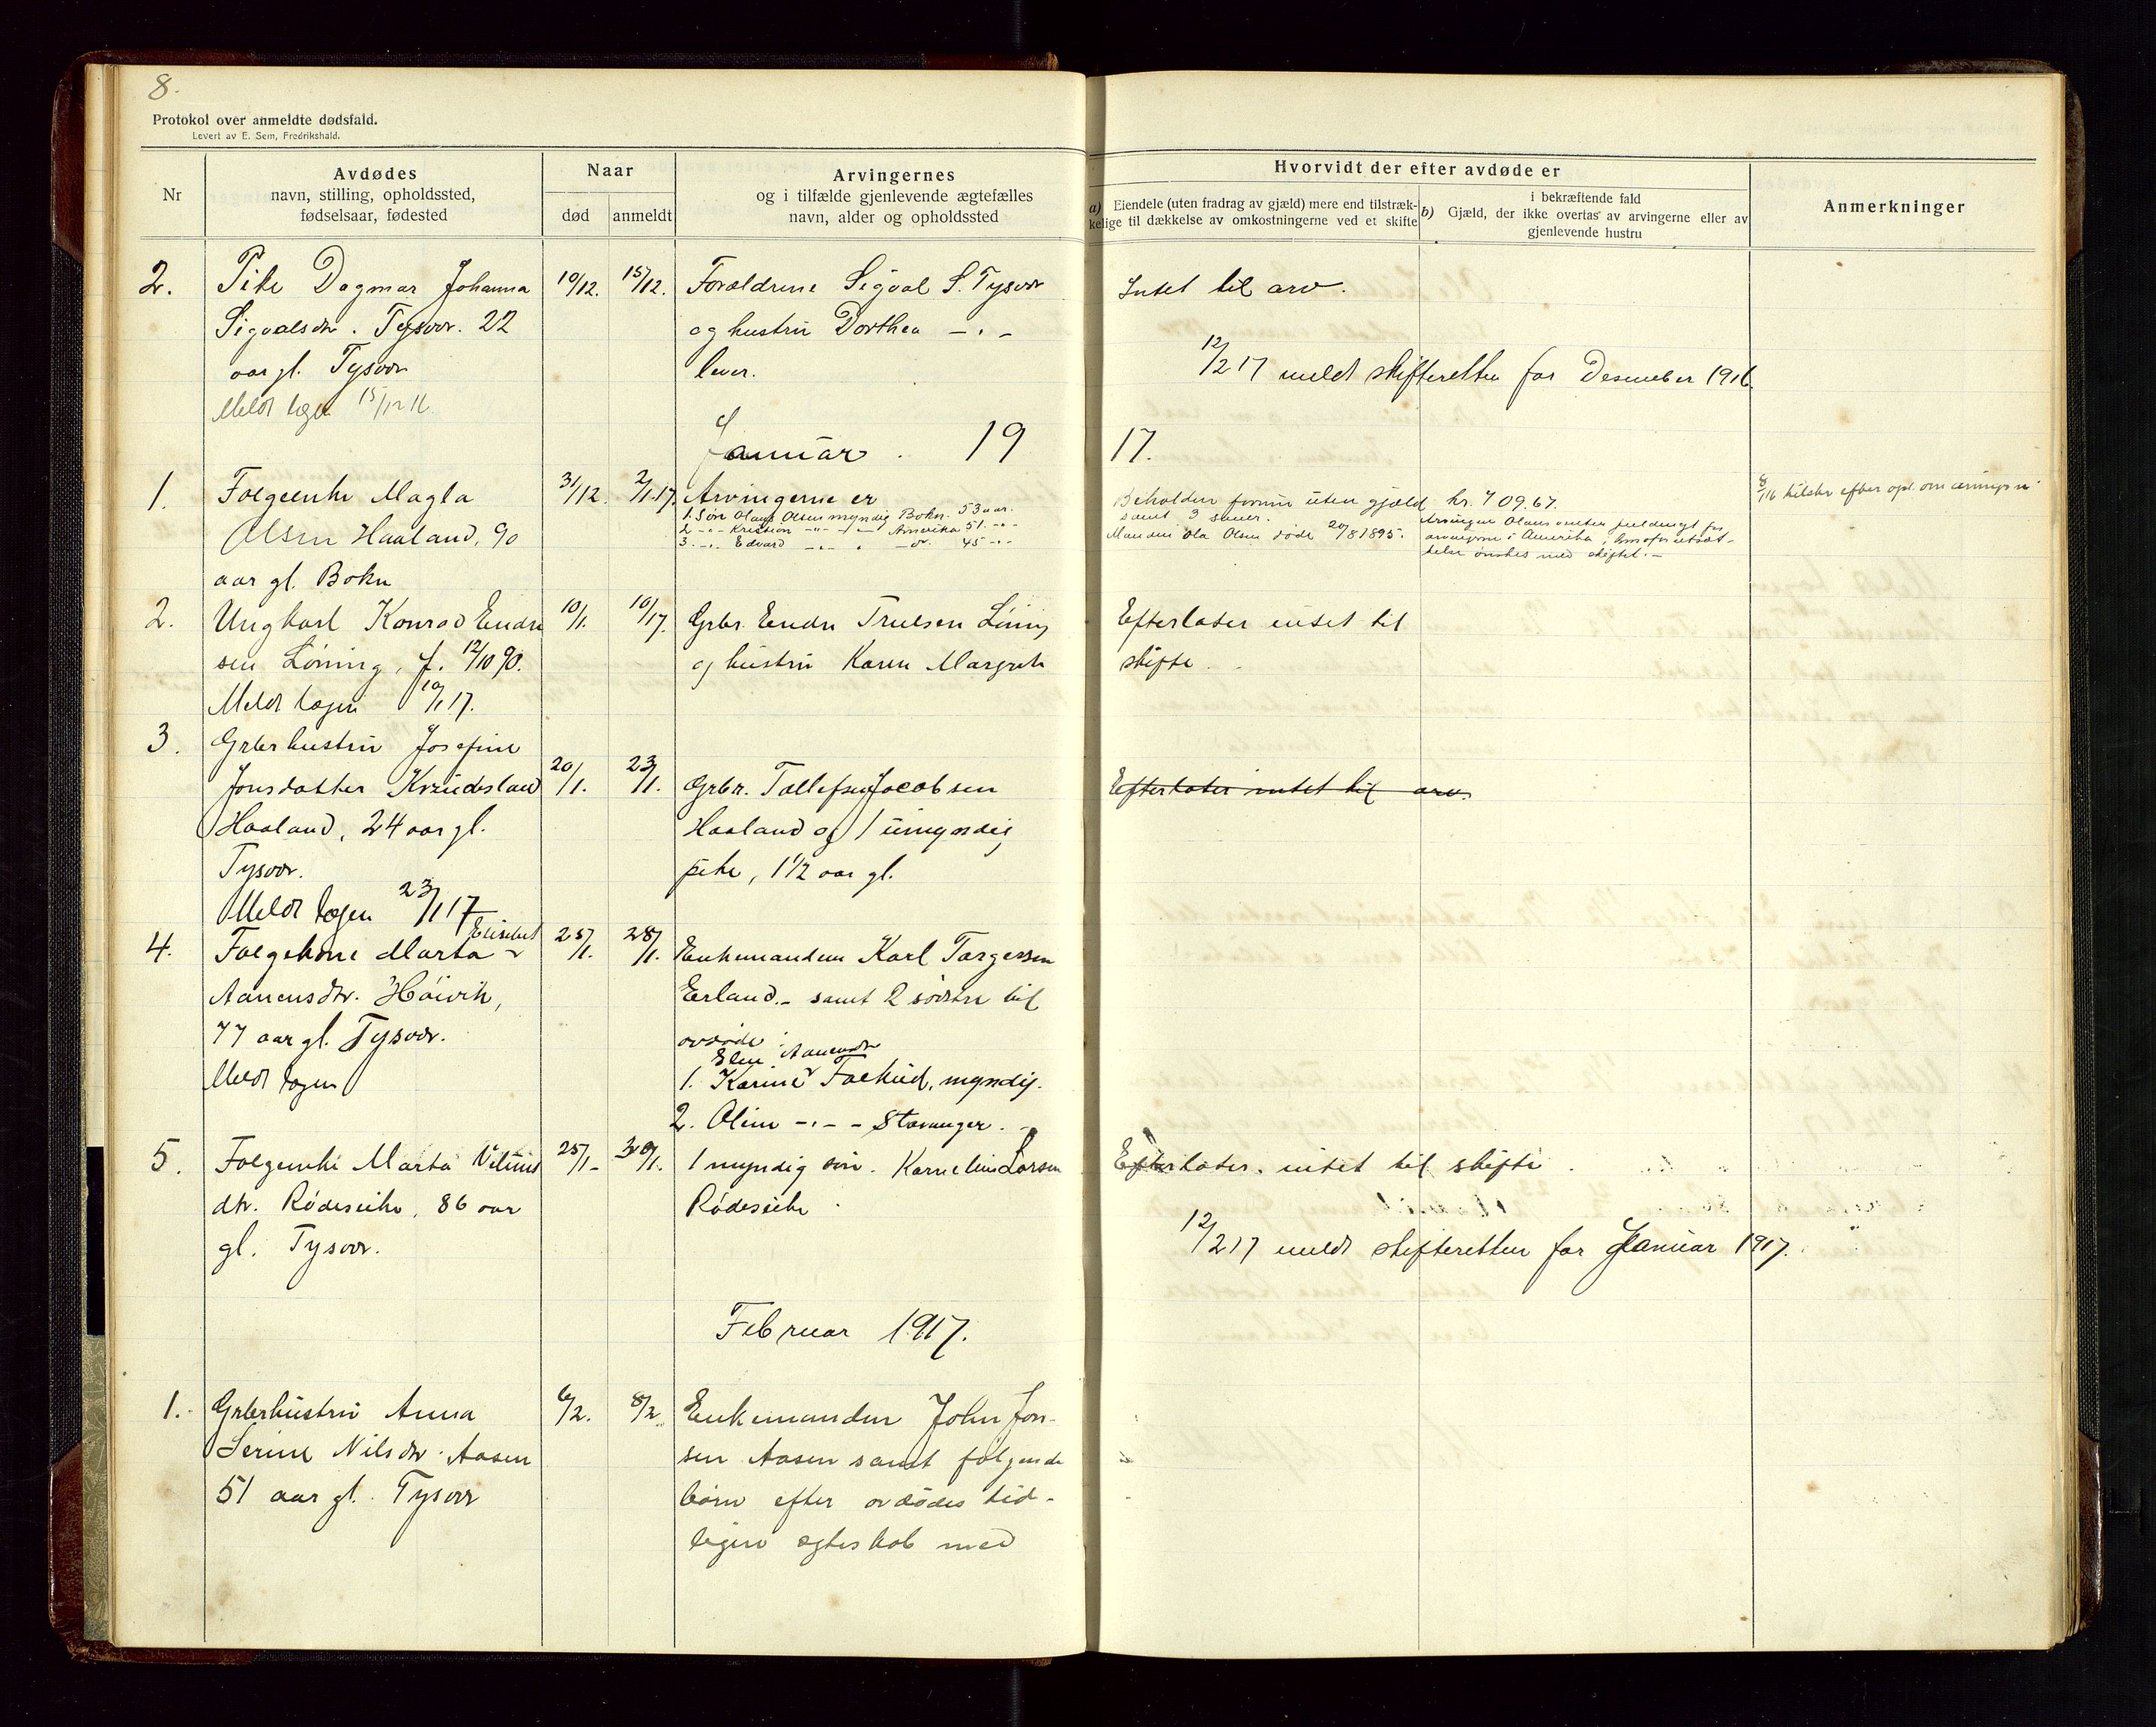 8.
Protokol over anmeldte dødsfald.
Levert av E. Sem, Fredrikshald.
Nr
Avdødes
navn, stilling, opholdssted,
fødselsaar, fødested
Naar
død
anmeldt
Arvingernes
og i tilfælde gjenlevende ægtefælles
navn, alder og opholdssted
Hvorvidt der efter avdøde er
a) Eiendele (uten fradrag av gjæld) mere end tilstræk-
kelige til dækkelse av omkostningerne ved et skifte
b)
i bekræftende fald
Gjæld, der ikke overtas av arvingerne eller av
gjenlevende hustru
Anmerkninger
2. Pike Dagmar Johanna
Sigvalsdr. Tysvær. 22
aar gl. Tysvær
Meldt lægen 15/12 16
10/12. 15/12.
Forældrene Sigval S. Tysvær
og hustru Dorthea — " —
lever.
Intet til arv.
12/2 17 meldt skifteretten for Desember 1916
Januar. 1917.
1. Folgeenke Magla
Olsen Haaland, 90
aar gl. Bokn
31/12. 2/1.17.
Arvingerne er
1. Søn Olaus Olsen myndig Bokn. 53 aar.
2. -"- Kristian -"- -"- Amerika 51 -"-
3. -"- Edvard -"- -"- 45 -"-
Beholden formue uten gjæld kr. 709.67.
samt 3 sauer.
Manden Ola Olsen døde 20/8 1895.
2. Ungkarl Konrad Endre
sen Løning, f. 12/10 90.
Meldt lægen 10/1 17.
10/1. 10/17.
Grbr. Endre Truelsen Løning
og hustru Karen Margrete
Efterlater intet til
skifte.
3. Grbrhustru Josefine
Jonsdatter
Haaland, 24 aar gl.
Tysvær.
Meldt lægen 23/1 17
20/1. 23/1.
Grbr. Tollefsen Jacobsen
Haaland og 1 umyndig
pike, 1 1/2 aar gl.
Efterlater intet til arv.
4. Folgekone Marta Elisabet
Aanensdtr. Høivik,
77 aar gl. Tysvær.
Meldt lægen
25/1. 28/1.
Enkemanden Karl Torgersen
Erland. - samt 2 søstre til
avdøde:
1. Karine Elen Aanensdtr Folkud, myndig.
2. Oline — " — Stavanger. -
5. Folgeenke Marta
dtr. 86 aar
gl. Tysvær.
25/1 30/1.
1 myndig søn. Kornelius Larsen
Efterlater intet til skifte.
12/2 17 meldt skifteretten for Januar 1917.
Februar 1917.
1. Grbrhustru Anna
Serine Nilsdtr. Aasen
51 aar gl. Tysvær
6/2. 8/2
Enkemanden John Jon-
sen Aasen samt følgende
børn efter avdødes tid-
ligere egteskab med